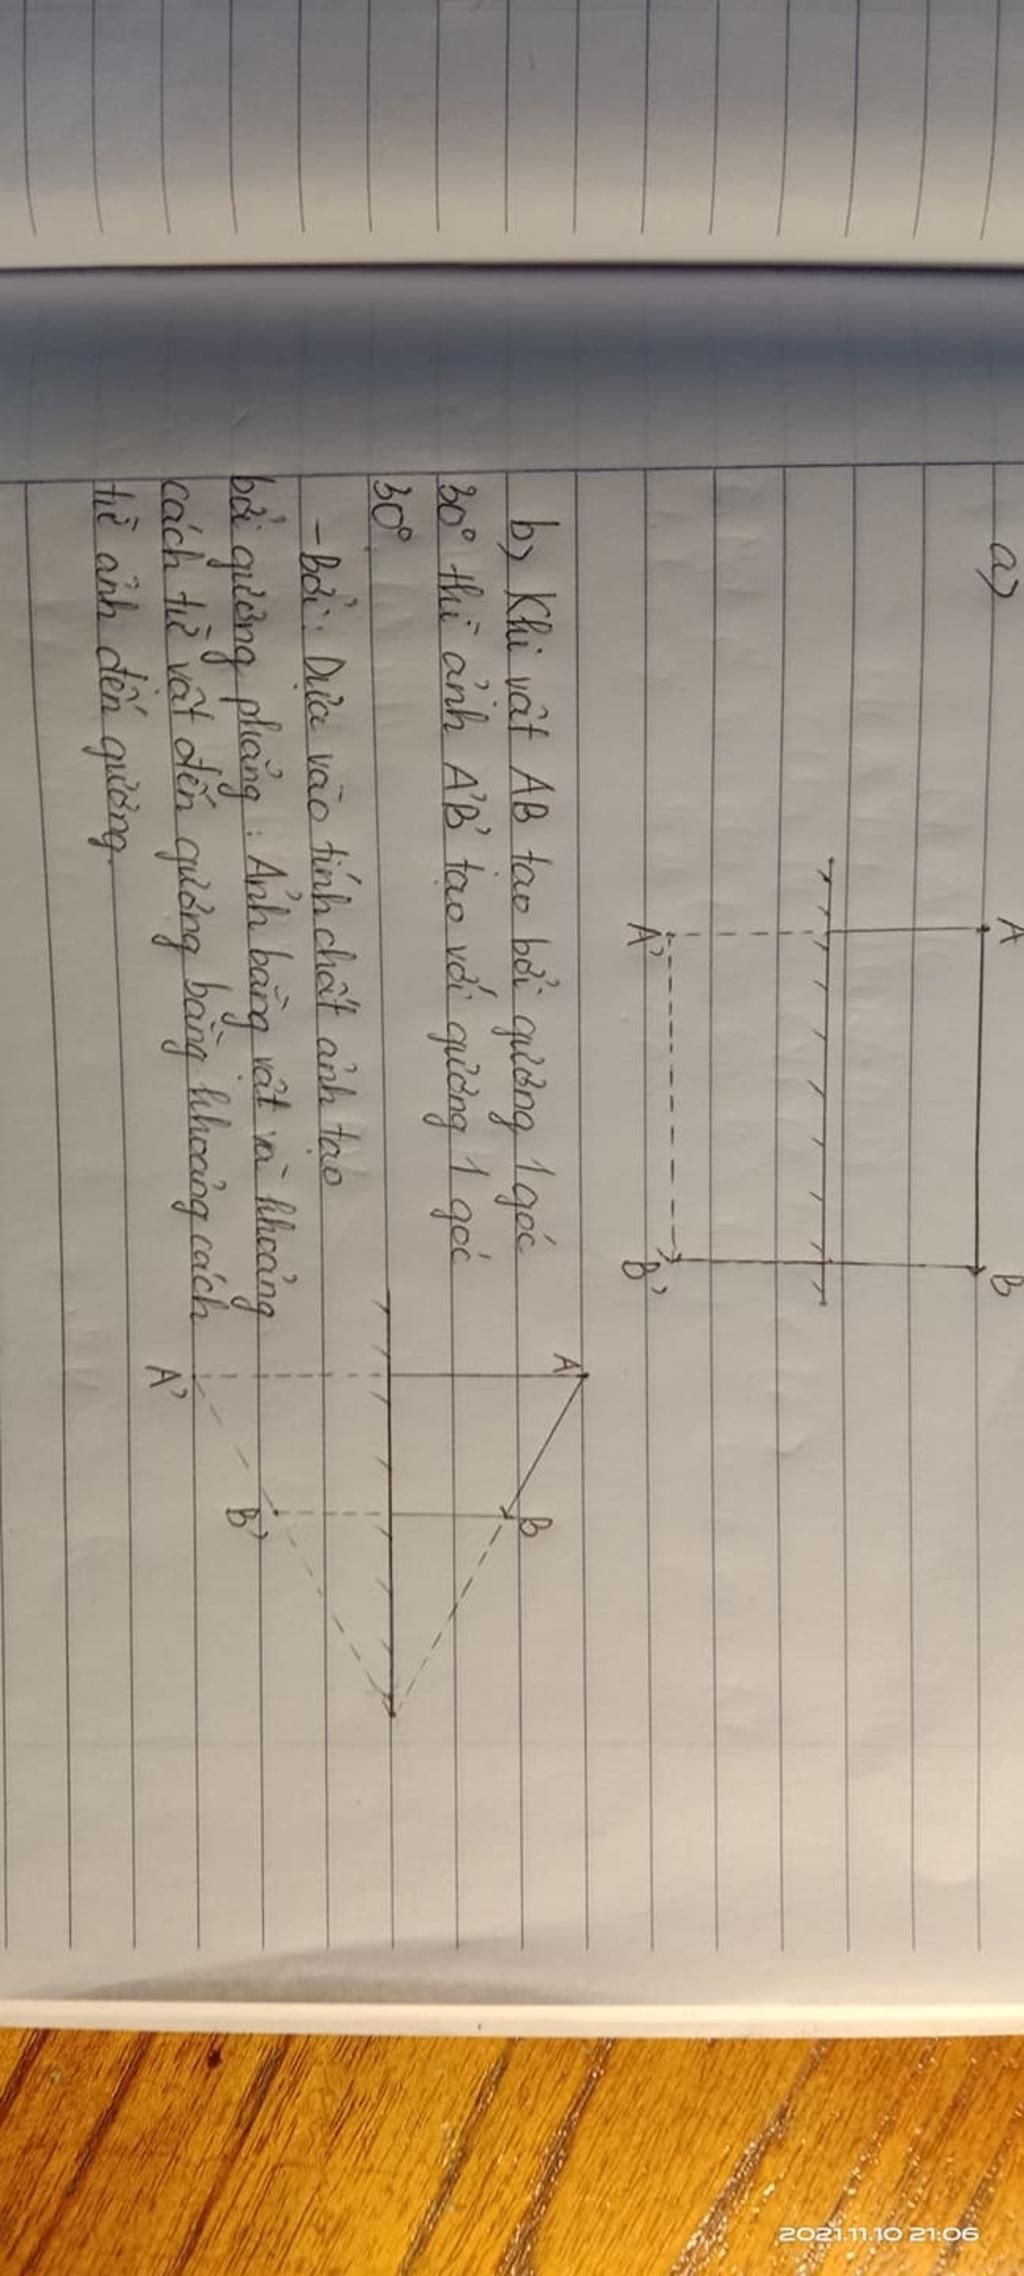 a)
A B
A' B'
b) Khi vật AB tao bởi gương 1 góc
30° thì ảnh A'B' tạo với gương 1 góc
30°.
A B
- bởi: Dựa vào tính chất ảnh tạo
bởi gương phẳng: Ảnh bằng vật và khoảng
cách từ vật đến gương bằng khoảng cách
từ ảnh đến gương.
A' B'
2021.11.10 21:06